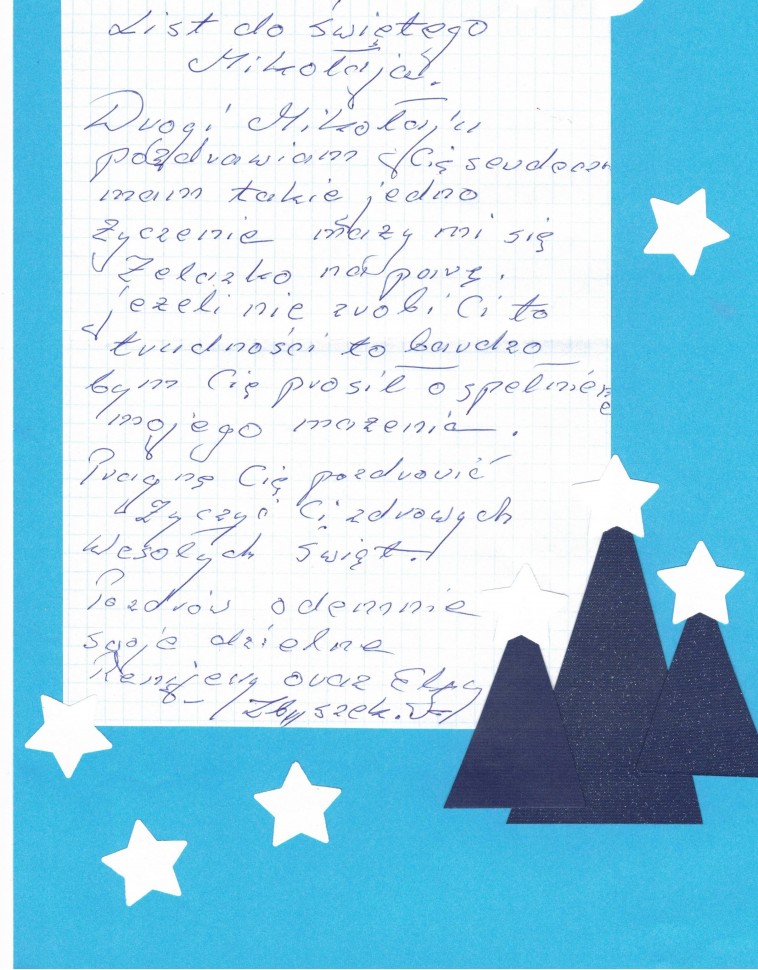 List do świętego
Mikołaja.
Drogi Mikołaju
pozdrawiam Cię serdeczn
mam takie jedno
życzenie mazy mi się
Żelazko na parę.
jeżeli nie zrobi Ci to
trudności to bardzo
bym Cię prosił o spełnien
mojego mazenia.
Pragnę Cię pozdrowić
Życzyć Ci zdrowych
Wesołych Świąt.
Pozdrów odemnie
swoje dzielne
Renifery oraz Elfy
Zbyszek.